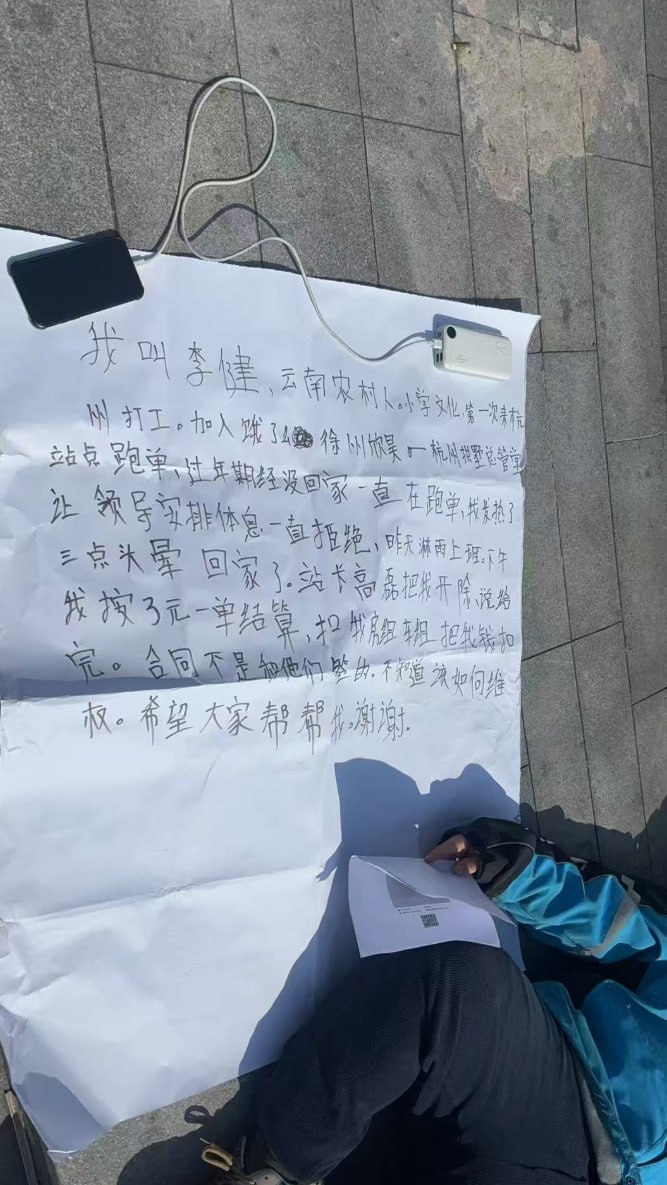 我叫李健,云南农村人。小学文化,第一次来杭
州打工。加入饿了么 徐州欣昊——杭州拱墅总管堂
站点跑单、过年期经没回家一直在跑单,我发热了
让领导安排体息一直拒绝,昨天淋雨上班,下午
三点头晕 回家了。站长高磊把我开除,说给
我按 元一单结算,扣我房租车租 把我钱扣
完。合同不是和他们签的.不知道该如何维
权。希望大家帮帮我。谢谢.